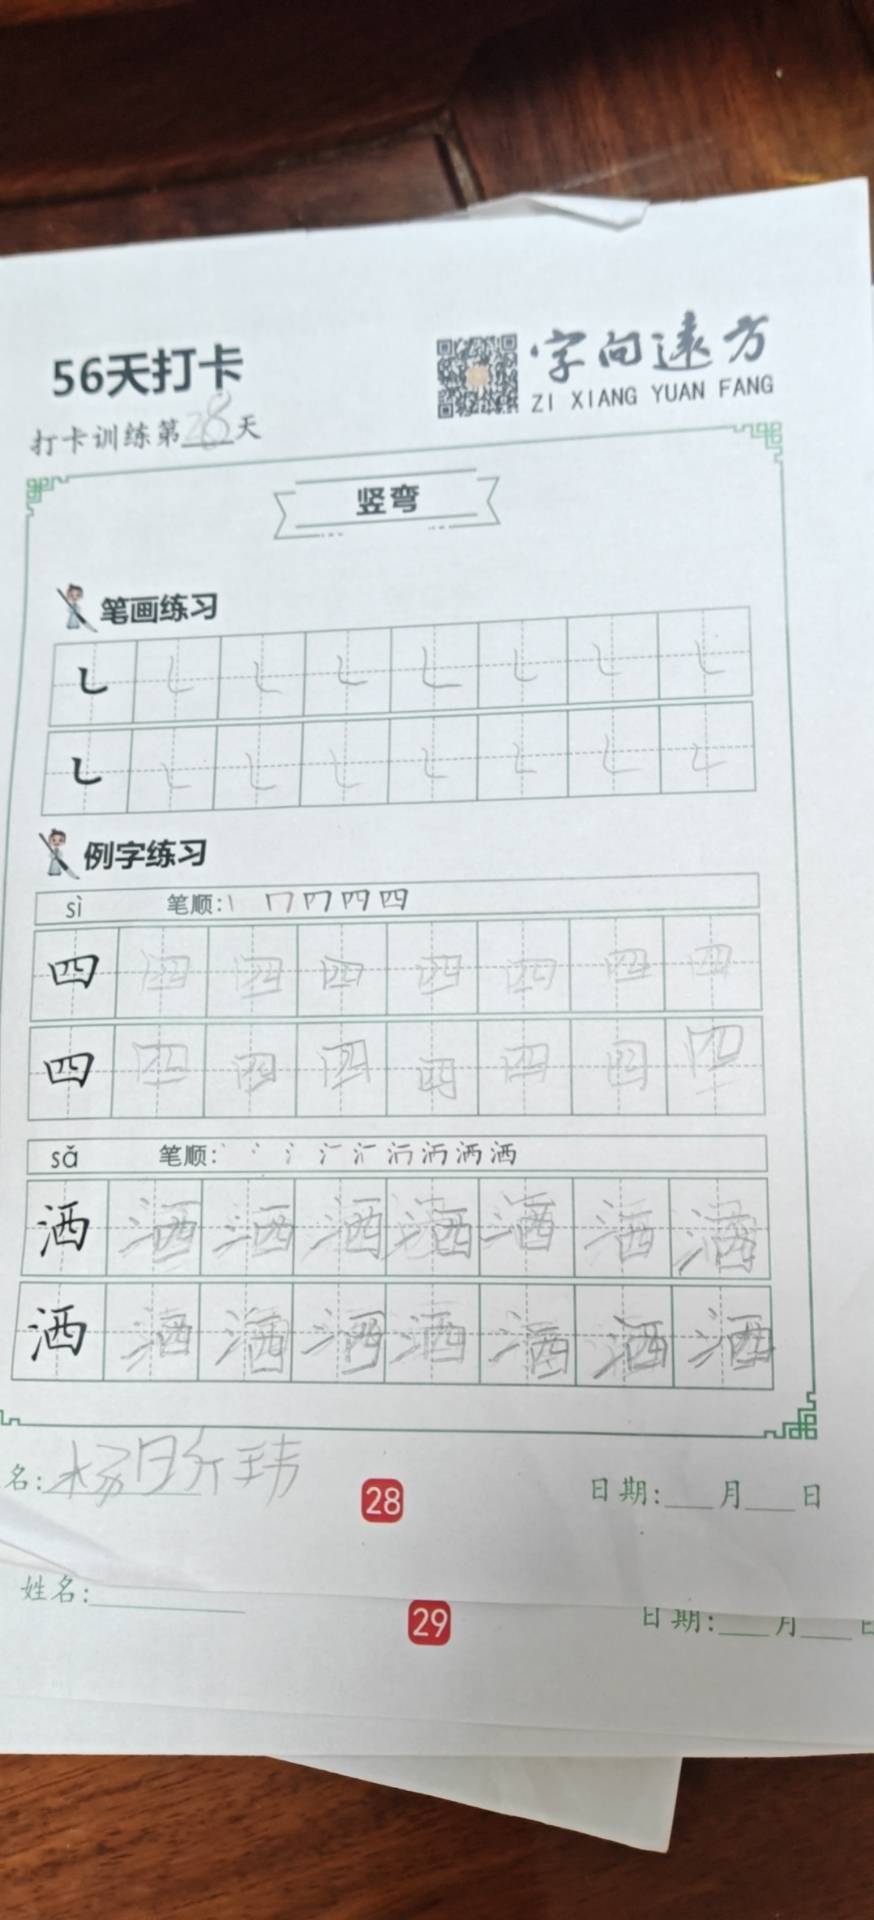 56天打卡
字向远方
ZI XIANG YUAN FANG
打卡训练第28天
竖弯
笔画练习
㇄ ㇄ ㇄ ㇄ ㇄ ㇄ ㇄ ㇄
㇄ ㇄ ㇄ ㇄ ㇄ ㇄ ㇄ ㇄
例字练习
sì 笔顺:
四 四 四 四 四 四 四 四
四 四 四 四 四 四 四 四
sǎ 笔顺:
洒 洒 洒 洒 洒 洒 洒 洒
洒 洒 洒 洒 洒 洒 洒 洒
名: 杨 玮
28
日期: 月 日
姓名:
29
日期: 月 日